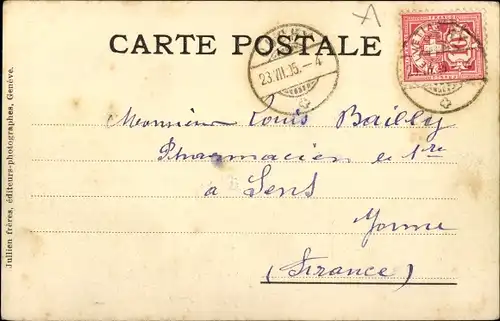 CARTE POSTALE
23.VII.05.-4
HELVETIA
10
Monsieur Louis Bailly
Pharmacien de 1re
à Sens
Yonne
(France)
Jullien frères, éditeurs-photographes, Genève.